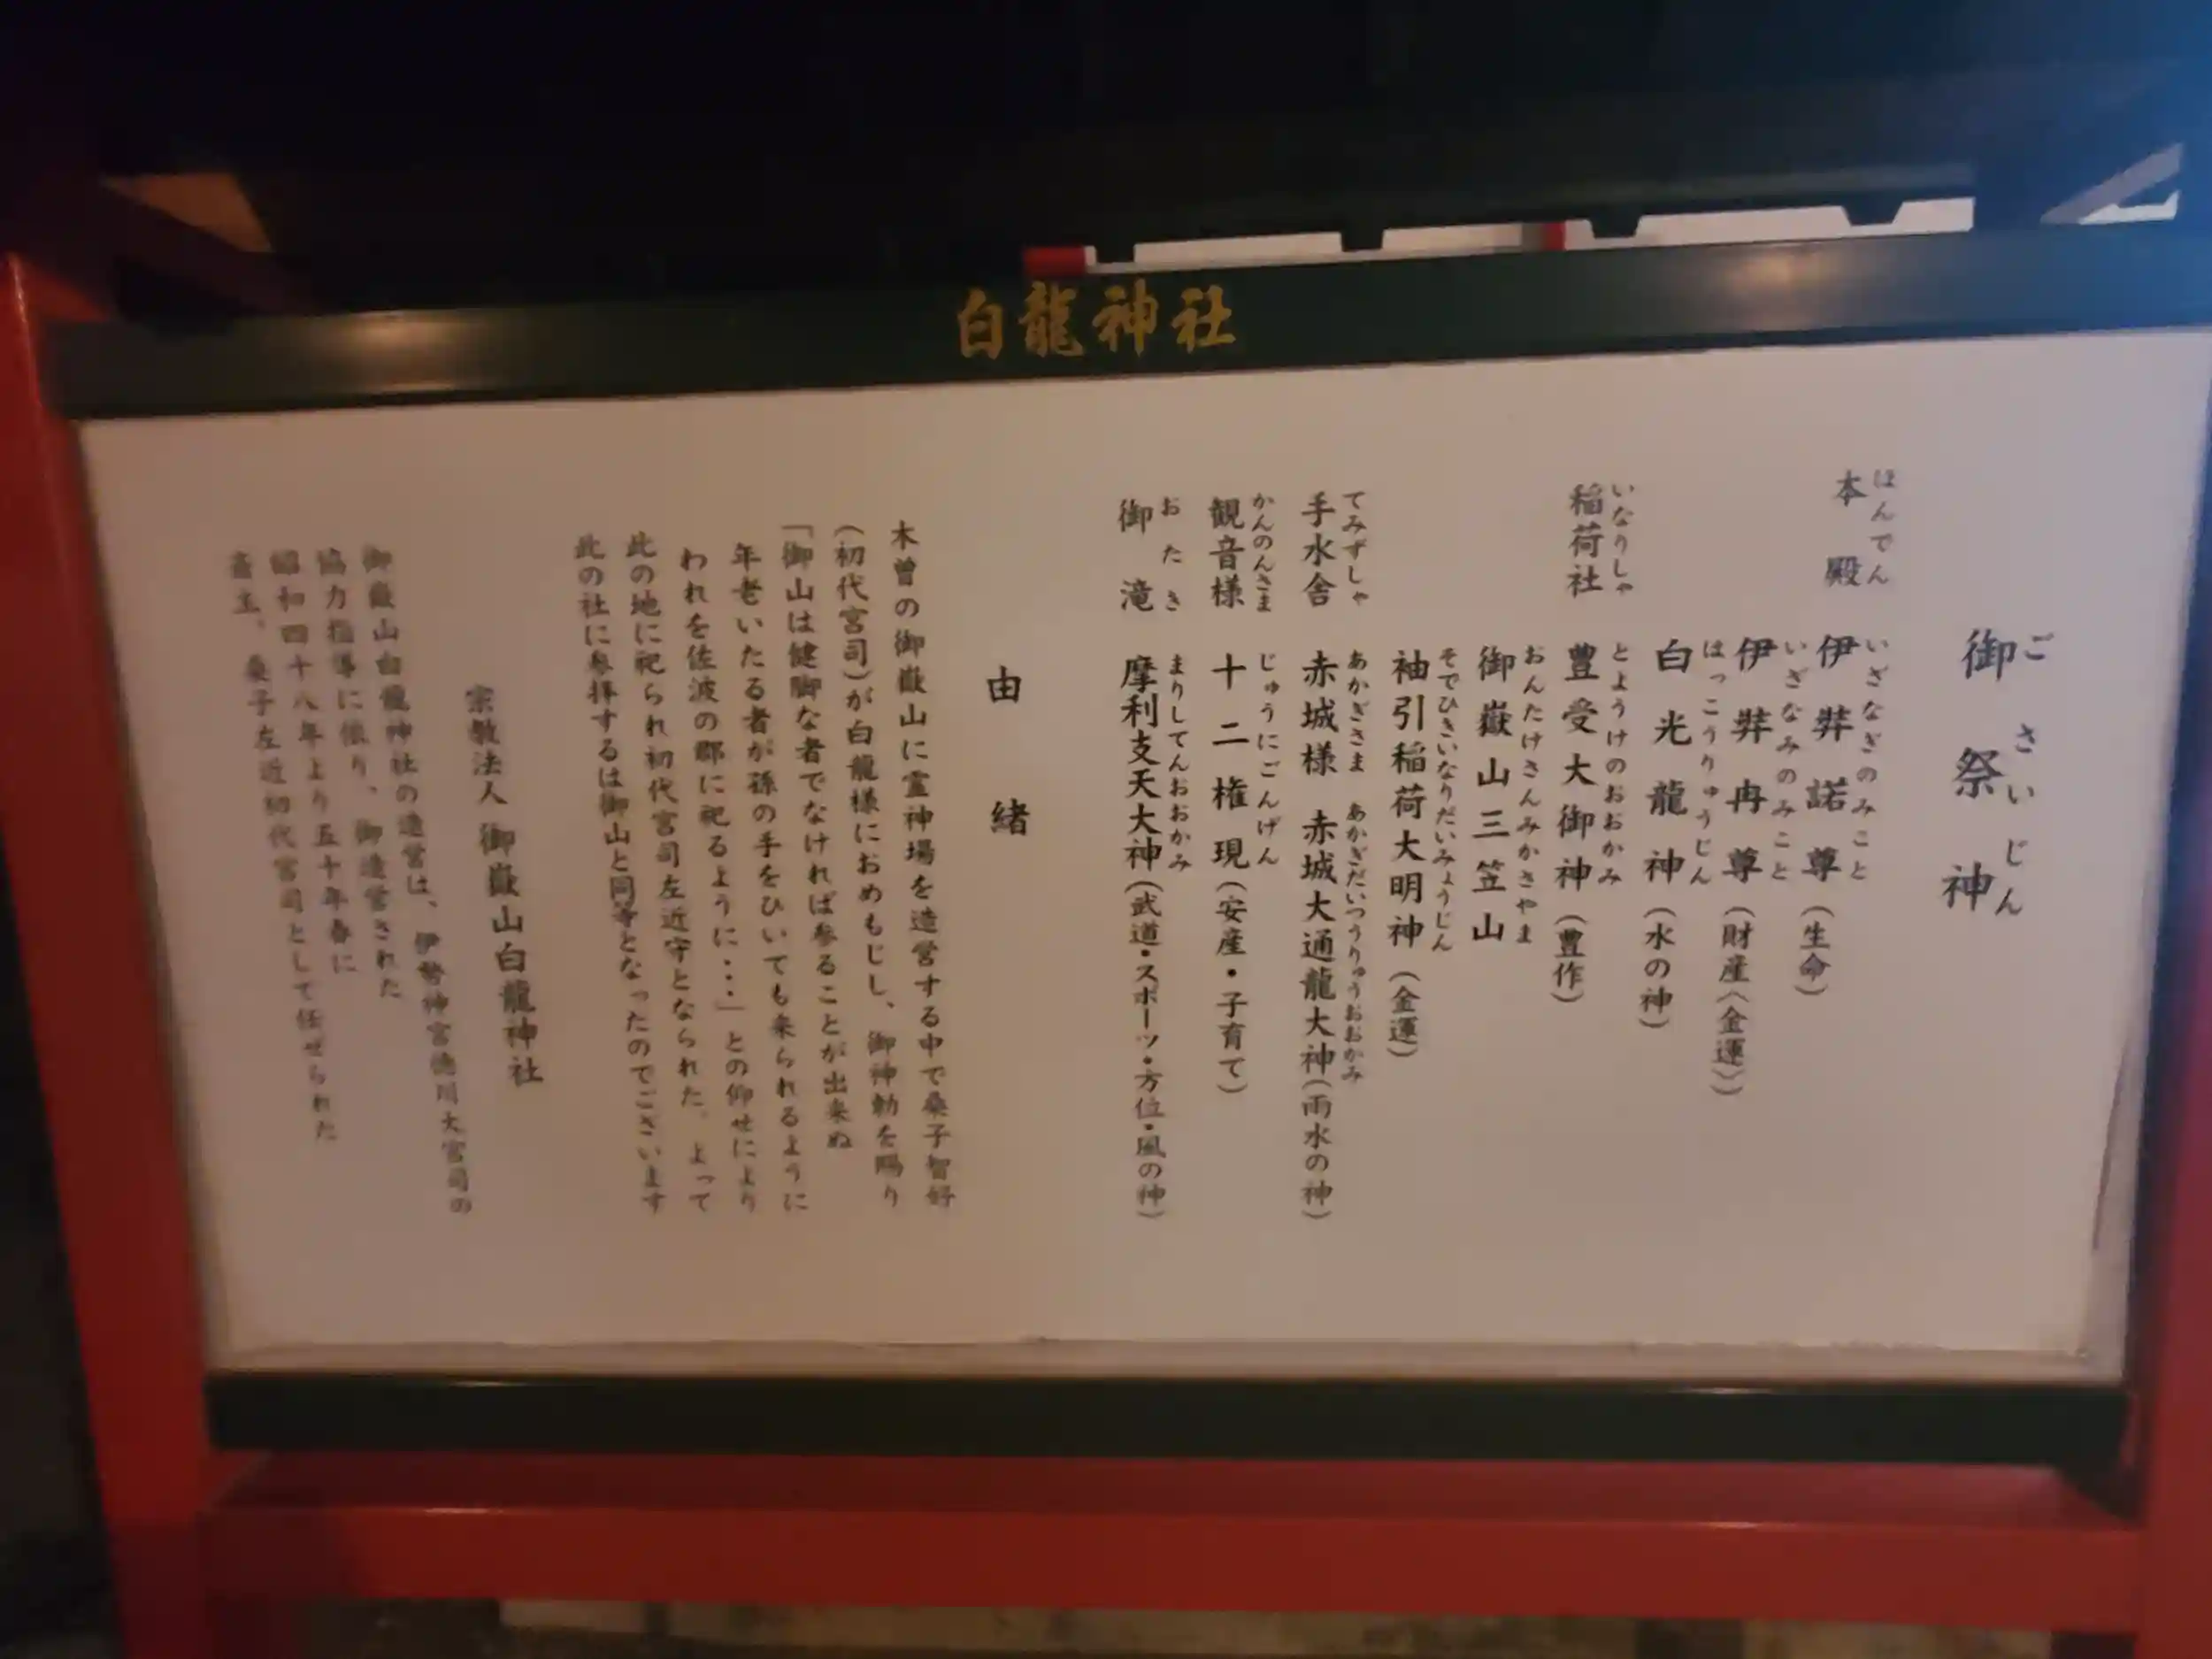 白龍神社
御祭神
ごさいじん
本殿
ほんでん
伊弉諾尊（生命）
いざなぎのみこと
伊弉冉尊（財産（金運））
いざなみのみこと
白光龍神（水の神）
はっこうりゅうじん
稲荷社
いなりしゃ
豊受大御神（豊作）
とようけのおおかみ
御嶽山三笠山
おんたけさんみかさやま
袖引稲荷大明神（金運）
そでひきいなりだいみょうじん
手水舎
てみずしゃ
赤城様 赤城大通龍大神（雨水の神）
あかぎさま あかぎだいつうりゅうおおかみ
観音様
かんのんさま
十二権現（安産・子育て）
じゅうにごんげん
御滝
おたき
摩利支天大神（武道・スポーツ・方位・風の神）
まりしてんおおかみ
由緒
木曽の御嶽山に霊神場を造営する中で桑子智好
（初代宮司）が白龍様におめもじし、御神勅を賜り
「御山は健脚な者でなければ参ることが出来ぬ
年老いたる者が孫の手をひいても来られるように
われを佐波の郡に祀るように・・・」との仰せにより
此の地に祀られ初代宮司左近守となられた。よって
此の社に参拝するは御山と同等となったのでございます
宗教法人 御嶽山白龍神社
御嶽山白龍神社の造営は、伊勢神宮徳川大宮司の
協力指導に依り、御造営された
昭和四十八年より五十年春に
斎主、桑子左近初代宮司として任ぜられた